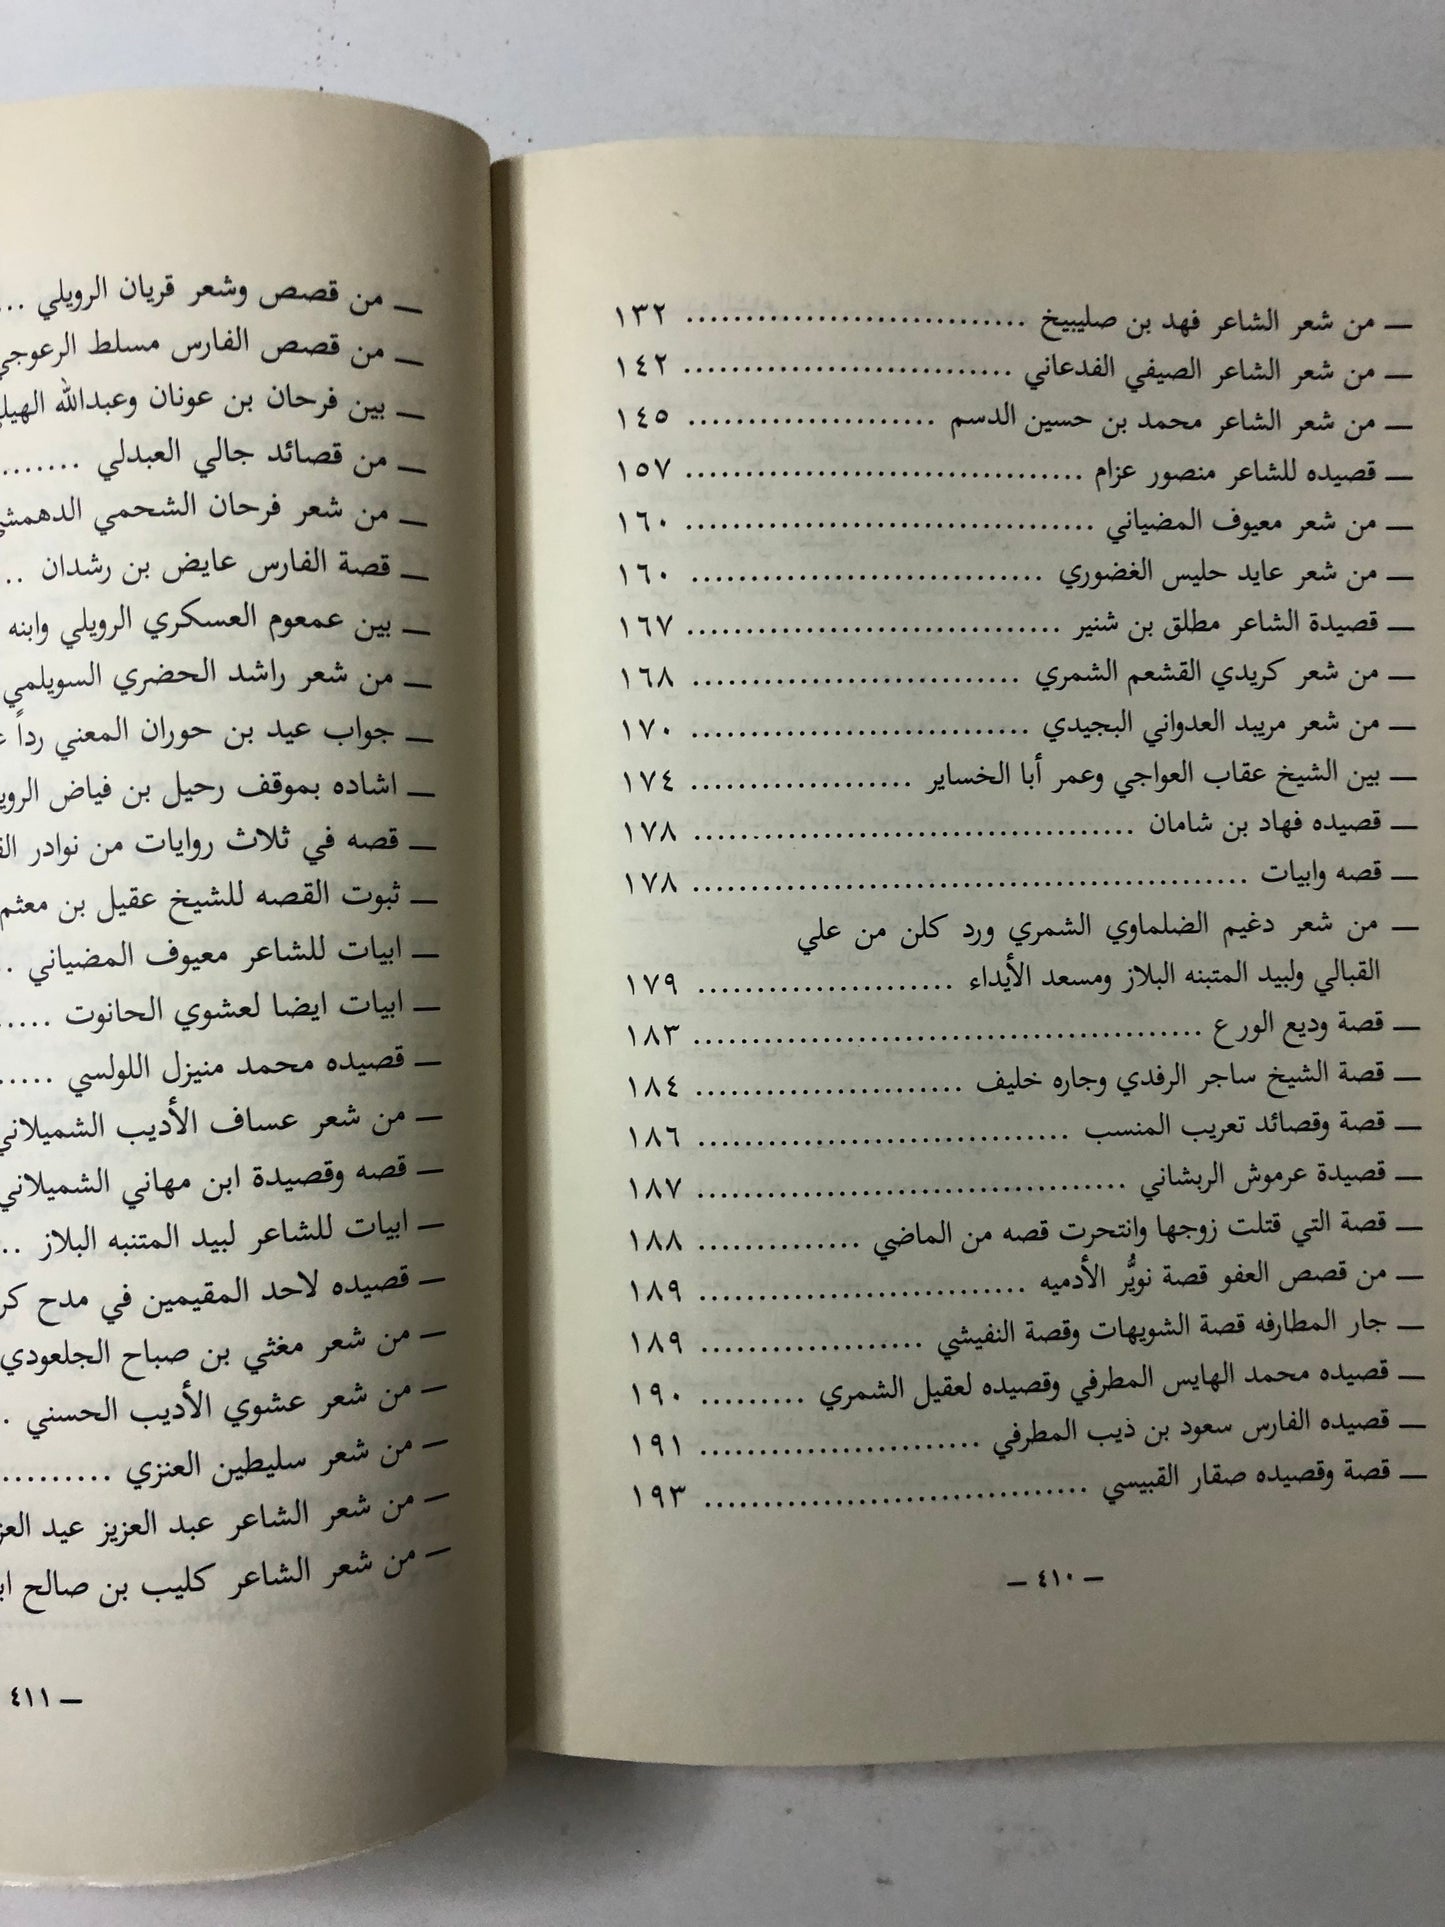 ـ من شعر الشاعر فهد بن صليبيخ .............................. ١٣٢
ـ من شعر الشاعر الصيفي الفدعاني .............................. ١٤٢
ـ من شعر الشاعر محمد بن حسين الدسم ...................... ١٤٥
ـ قصيده للشاعر منصور عزام .................................. ١٥٧
ـ من شعر معيوف المضياني .................................... ١٦٠
ـ من شعر عايد حليس الغضوري ............................... ١٦٠
ـ قصيدة الشاعر مطلق بن شنير ................................ ١٦٧
ـ من شعر كريدي القشعم الشمري ............................ ١٦٨
ـ من شعر مريبد العدواني البجيدي ............................. ١٧٠
ـ بين الشيخ عقاب العواجي وعمر أبا الخساير ................... ١٧٤
ـ قصيده فهاد بن شامان ...................................... ١٧٨
ـ قصه وابيات ................................................ ١٧٨
ـ من شعر دغيم الضلماوي الشمري ورد كلن من علي
القبالي ولبيد المتبنه البلاز ومسعد الأيداء ...................... ١٧٩
ـ قصة وديع الورع ............................................ ١٨٣
ـ قصة الشيخ ساجر الرفدي وجاره خليف ....................... ١٨٤
ـ قصة وقصائد تعريب المنسب ................................. ١٨٦
ـ قصيدة عرموش الربشاني ..................................... ١٨٧
ـ قصة التي قتلت زوجها وانتحرت قصه من الماضي .............. ١٨٨
ـ من قصص العفو قصة نويُّر الأدميه ............................ ١٨٩
ـ جار المطارفه قصة الشويهات وقصة النفيشي ................... ١٨٩
ـ قصيده محمد الهايس المطرفي وقصيده لعقيل الشمري ......... ١٩٠
ـ قصيده الفارس سعود بن ذيب المطرفي ........................ ١٩١
ـ قصة وقصيده صقار القبيسي ................................. ١٩٣
ـ ٤١٠ ـ
ـ من قصص وشعر قريان الرويلي ...
ـ من قصص الفارس مسلط الرعوجي
ـ بين فرحان بن عونان وعبدالله
ـ من قصائد جالي العبدلي .......
ـ من شعر فرحان الشحمي
ـ قصة الفارس عايض بن رشدان ..
ـ بين عمعوم العسكري الرويلي وابنه
ـ من شعر راشد الحضري السويلمي
ـ جواب عيد بن حوران المعني رداً
ـ اشاده بموقف رحيل بن فياض
ـ قصه في ثلاث روايات من نوادر
ـ ثبوت القصه للشيخ عقيل بن معثم
ـ ابيات للشاعر معيوف المضياني ..
ـ ابيات ايضا لعشوي الحانوت ......
ـ قصيده محمد منيزل اللولسي ......
ـ من شعر عساف الأديب الشميلاني
ـ قصه وقصيدة ابن مهاني الشميلاني
ـ ابيات للشاعر لبيد المتنبه البلاز ..
ـ قصيده لاحد المقيمين في مدح
ـ من شعر مغثي بن صباح الجلعودي
ـ من شعر عشوي الأديب الحسني ..
ـ من شعر سليطين العنزي ..........
ـ من شعر الشاعر عبد العزيز عيد
ـ من شعر الشاعر كليب بن صالح
ـ ٤١١